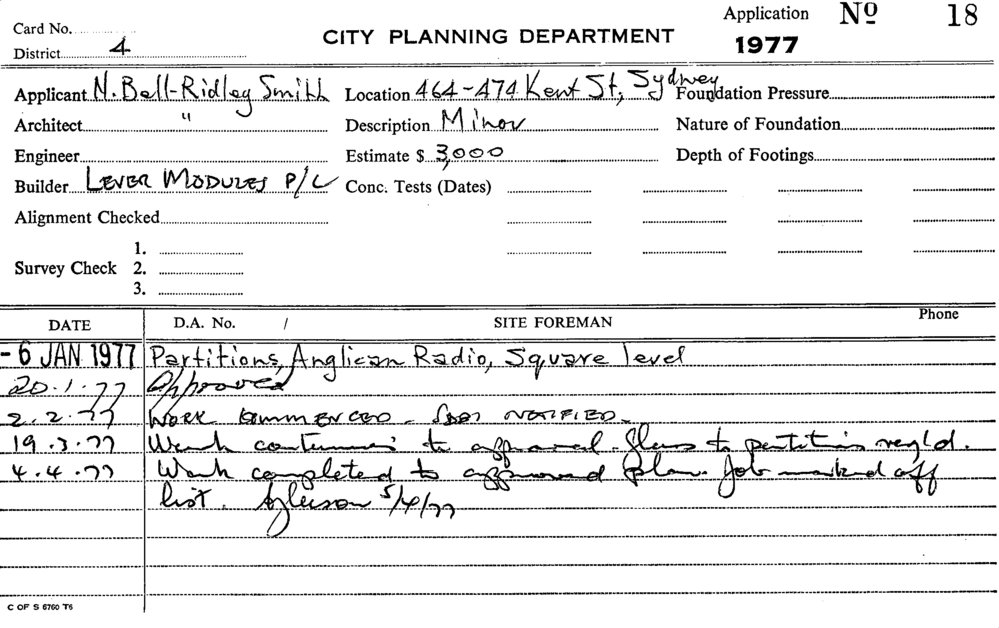 Card No. Application No 18
District 4 CITY PLANNING DEPARTMENT 1977
Applicant N. Bell-Ridley Smith Location 464-474 Kent St, Sydney Foundation Pressure
Architect " Description Minor Nature of Foundation
Engineer Estimate $ 3,000 Depth of Footings
Builder LEVER MODULES P/L Conc. Tests (Dates)
Alignment Checked
1.
Survey Check 2.
3.
DATE D.A. No. / SITE FOREMAN Phone
- 6 JAN 1977 Partitions, Anglican Radio, Square level
20.1.77 Approved
2.2.77 WORK COMMENCED NOTIFIED
19.3.77 Work continuing to approval. to partitions reqd.
4.4.77 Work completed to approved plan. Job marked off
list. 5/4/77
C OF S 6760 T6